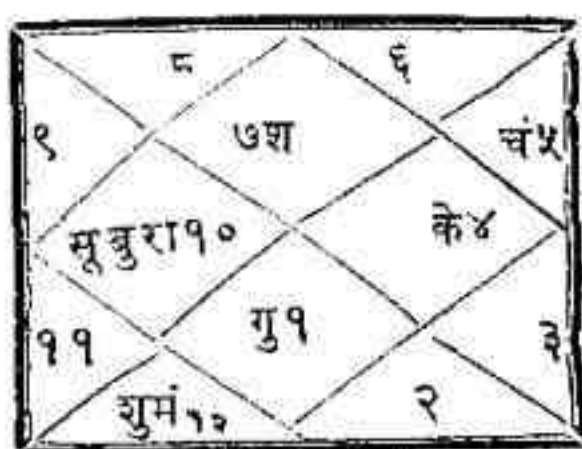 ८ ६
९ ७श चं५
सूबुरा१० के४
११ गु१ ३
शुमं१२ २